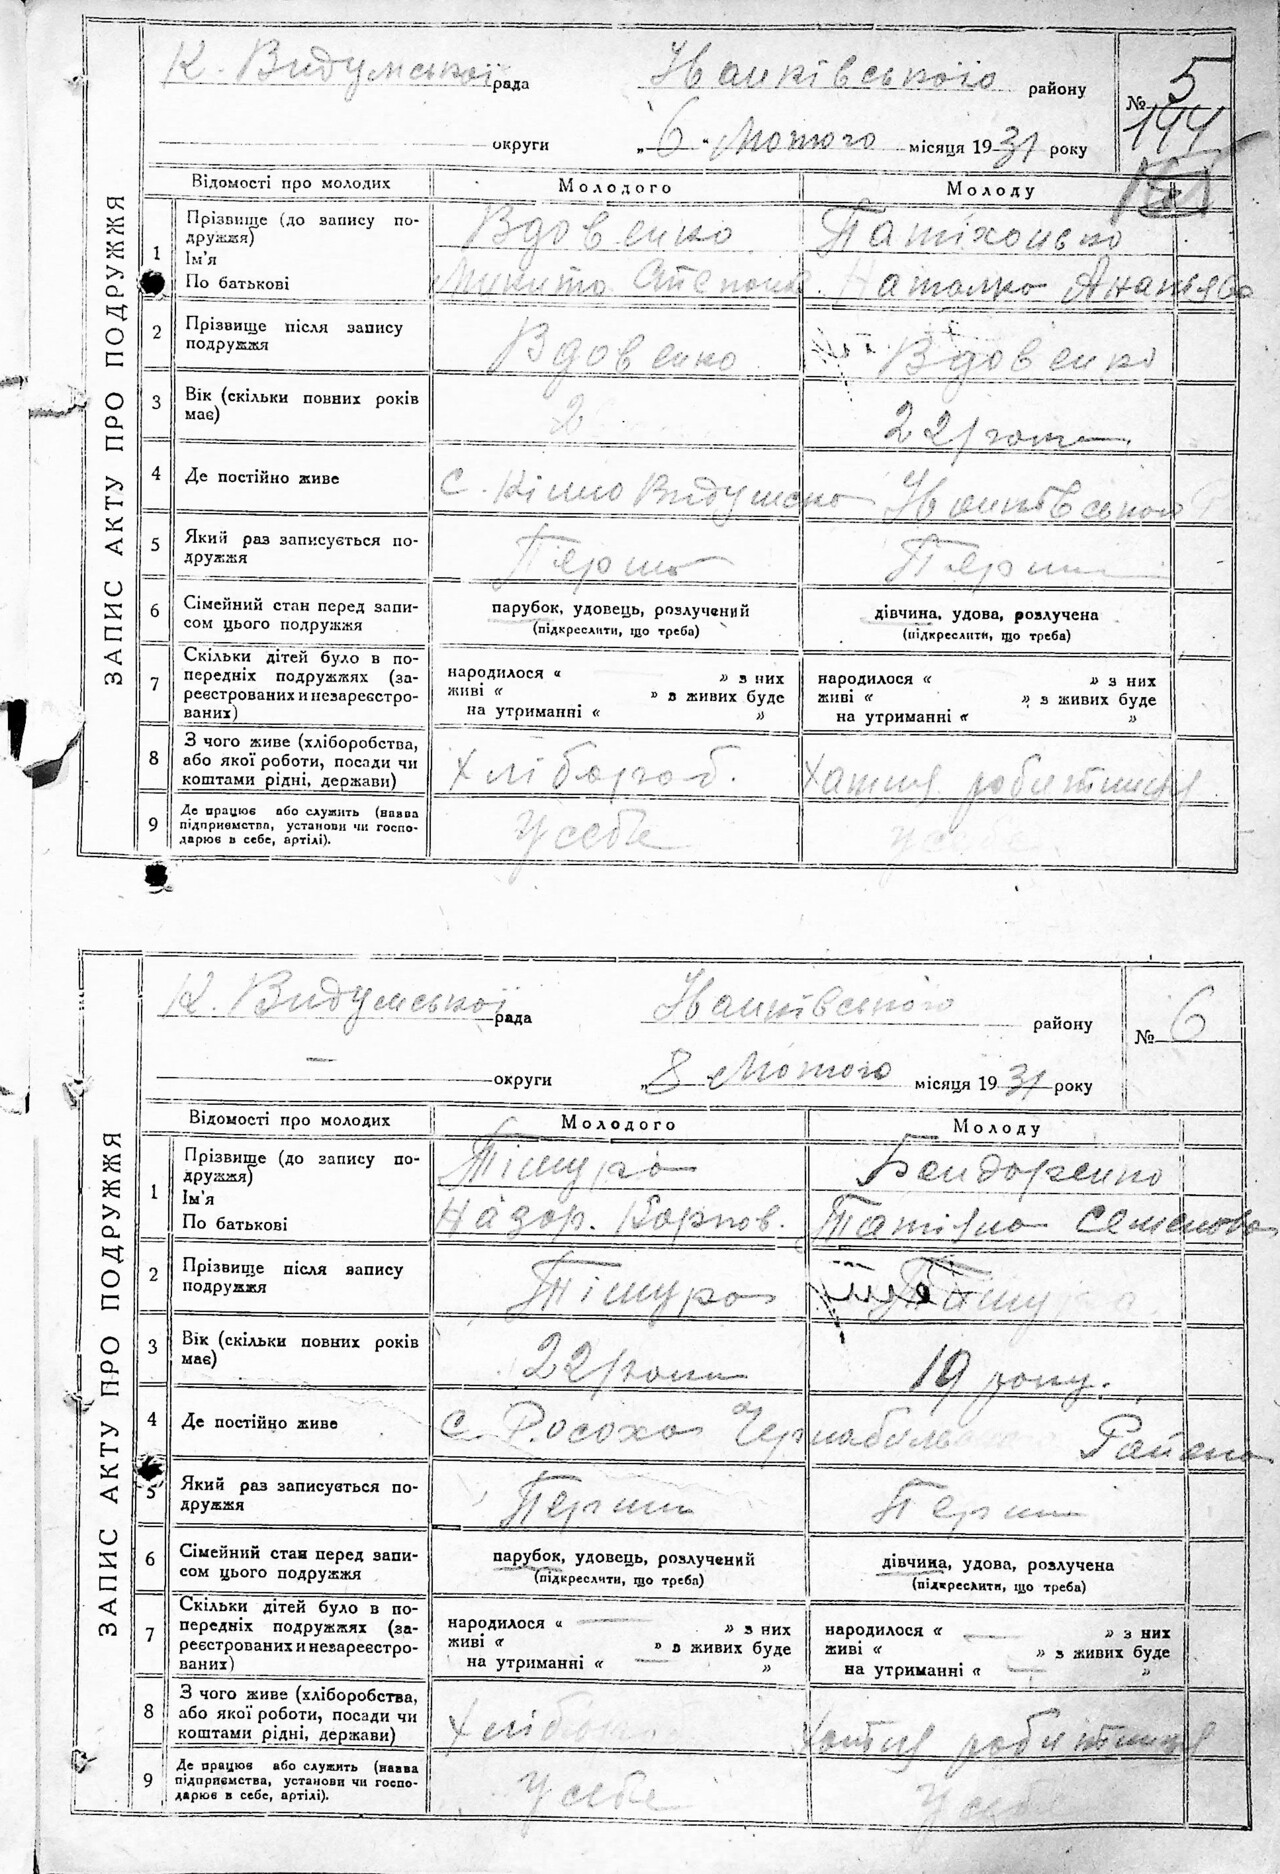 ЗАПИС АКТУ ПРО ПОДРУЖЖЯ
К. Видумської рада Іванківського району № 5
144
округи „6" Лютого місяця 1931 року
Відомості про молодих Молодого Молоду
1 Прізвище (до запису по-
дружжя) Вдовенко
Ім'я
По батькові Микита Степон. Наталка Ананьєво
2 Прізвище після запису
подружжя Вдовенко Вдовенко
3 Вік (скільки повних років
має) 2 22 роки
4 Де постійно живе с. Кімло Видумска Іванківського Р
5 Який раз записується по-
дружжя Перший Перши
6 Сімейний стан перед запи-
сом цього подружжя парубок, удовець, розлучений дівчина, удова, розлучена
(підкреслити, що треба) (підкреслити, що треба)
7 Скільки дітей було в по-
передніх подружжях (за-
реєстрованих и незареєстро-
ваних)
народилося « » з них народилося « » з них
живі « » з живих буде живі « » з живих буде
на утриманні « » на утриманні « »
8 З чого живе (хліборобства,
або якої роботи, посади чи
коштами рідні, держави) Хлібороб. Хатня робитниця
9 Де працює або служить (назва
підприємства, установи чи госпо-
дарює в себе, артілі). У себе У себе
ЗАПИС АКТУ ПРО ПОДРУЖЖЯ
К. Видумської рада Іванківського району № 6
— округи „8 Лютого місяця 1931 року
Відомості про молодих Молодого Молоду
1 Прізвище (до запису по-
дружжя) Тімура Бондоренко
Ім'я
По батькові Назор. Корпов. Татіяна Семенова
2 Прізвище після запису
подружжя Тімура Тімура
3 Вік (скільки повних років
має) 22 роки 19 року.
4 Де постійно живе с. Росоха Чернабильского Району
5 Який раз записується по-
дружжя Перши Перши
6 Сімейний стан перед запи-
сом цього подружжя парубок, удовець, розлучений дівчина, удова, розлучена
(підкреслити, що треба) (підкреслити, що треба)
7 Скільки дітей було в по-
передніх подружжях (за-
реєстрованих и незареєстро-
ваних)
народилося « — » з них народилося « — » з них
живі « » з живих буде живі « » з живих буде
на утриманні « — » на утриманні « — »
8 З чого живе (хліборобства,
або якої роботи, посади чи
коштами рідні, держави) Хлібороб Хатня робитниця
9 Де працює або служить (назва
підприємства, установи чи госпо-
дарює в себе, артілі). У себе У себе